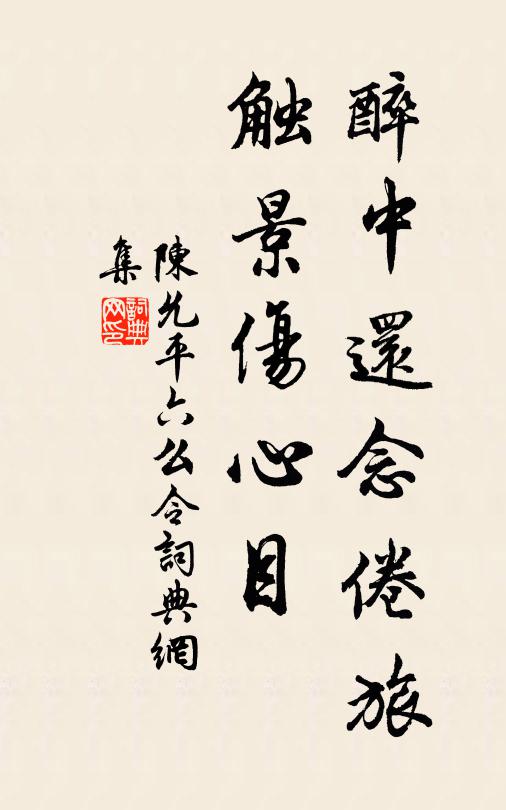 醉中還念倦旅
触景傷心目
陳允平六么令詞典網
集
詞典網印